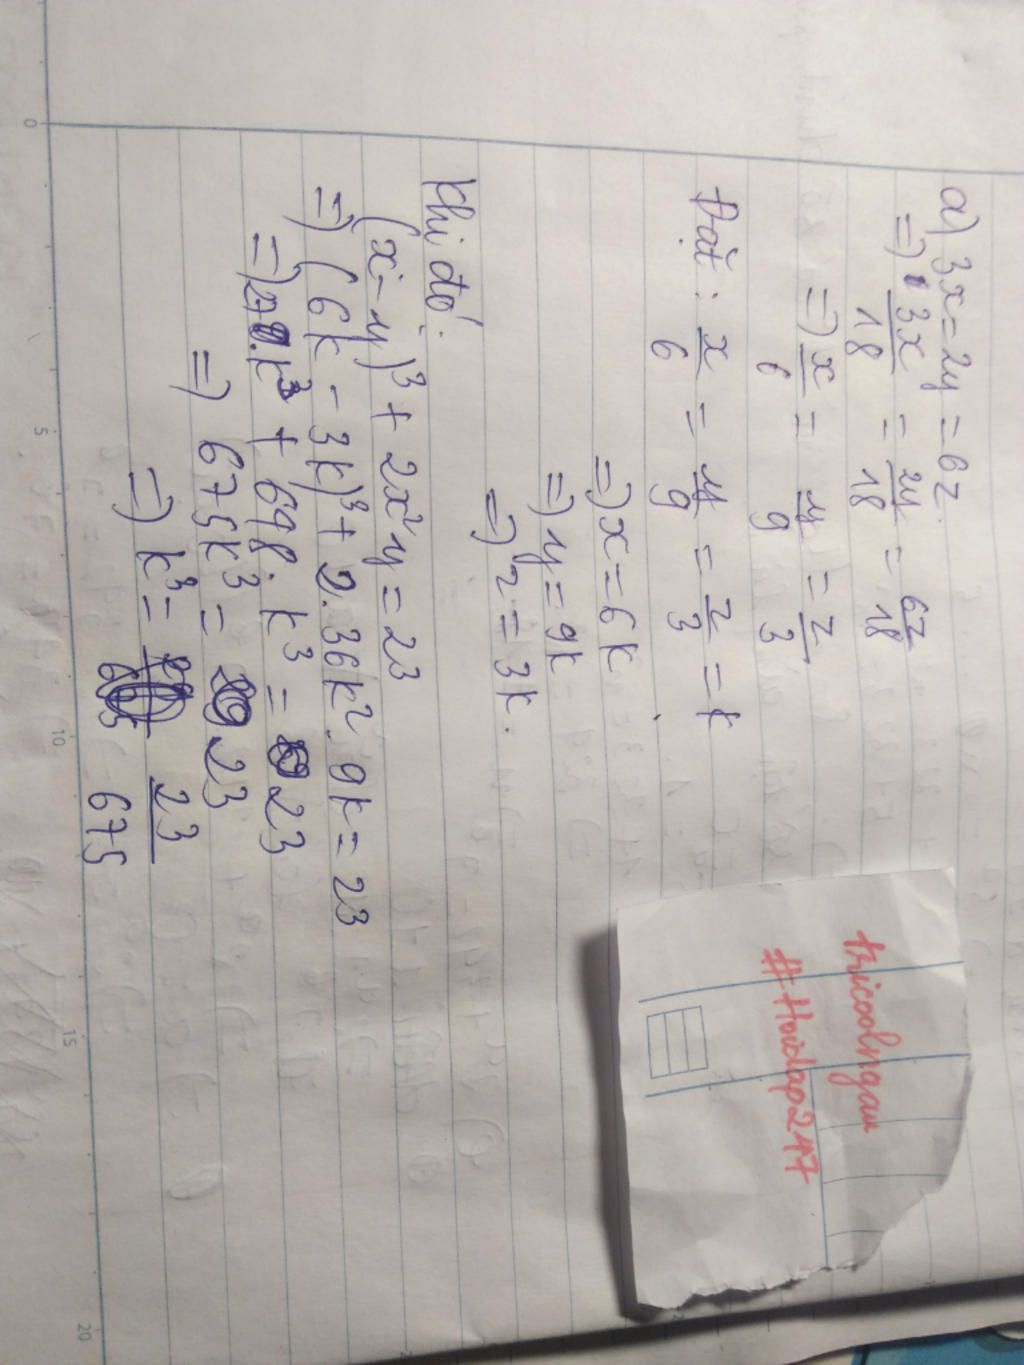 a) 3x = 2y = 6z.
=> 3x/18 = 2y/18 = 6z/18
=> x/6 = y/9 = z/3
Đặt : x/6 = y/9 = z/3 = k
=> x = 6k
=> y = 9k
=> z = 3k.
Khi đó:
(x - y)³ + 2x²y = 23
=> (6k - 3k)³ + 2.36k².9k = 23
=> 27.k³ + 648.k³ = 23
=> 675k³ = 23
=> k³ = 23/675
tricoolngau
#Hoidap247
0
5
10
15
20